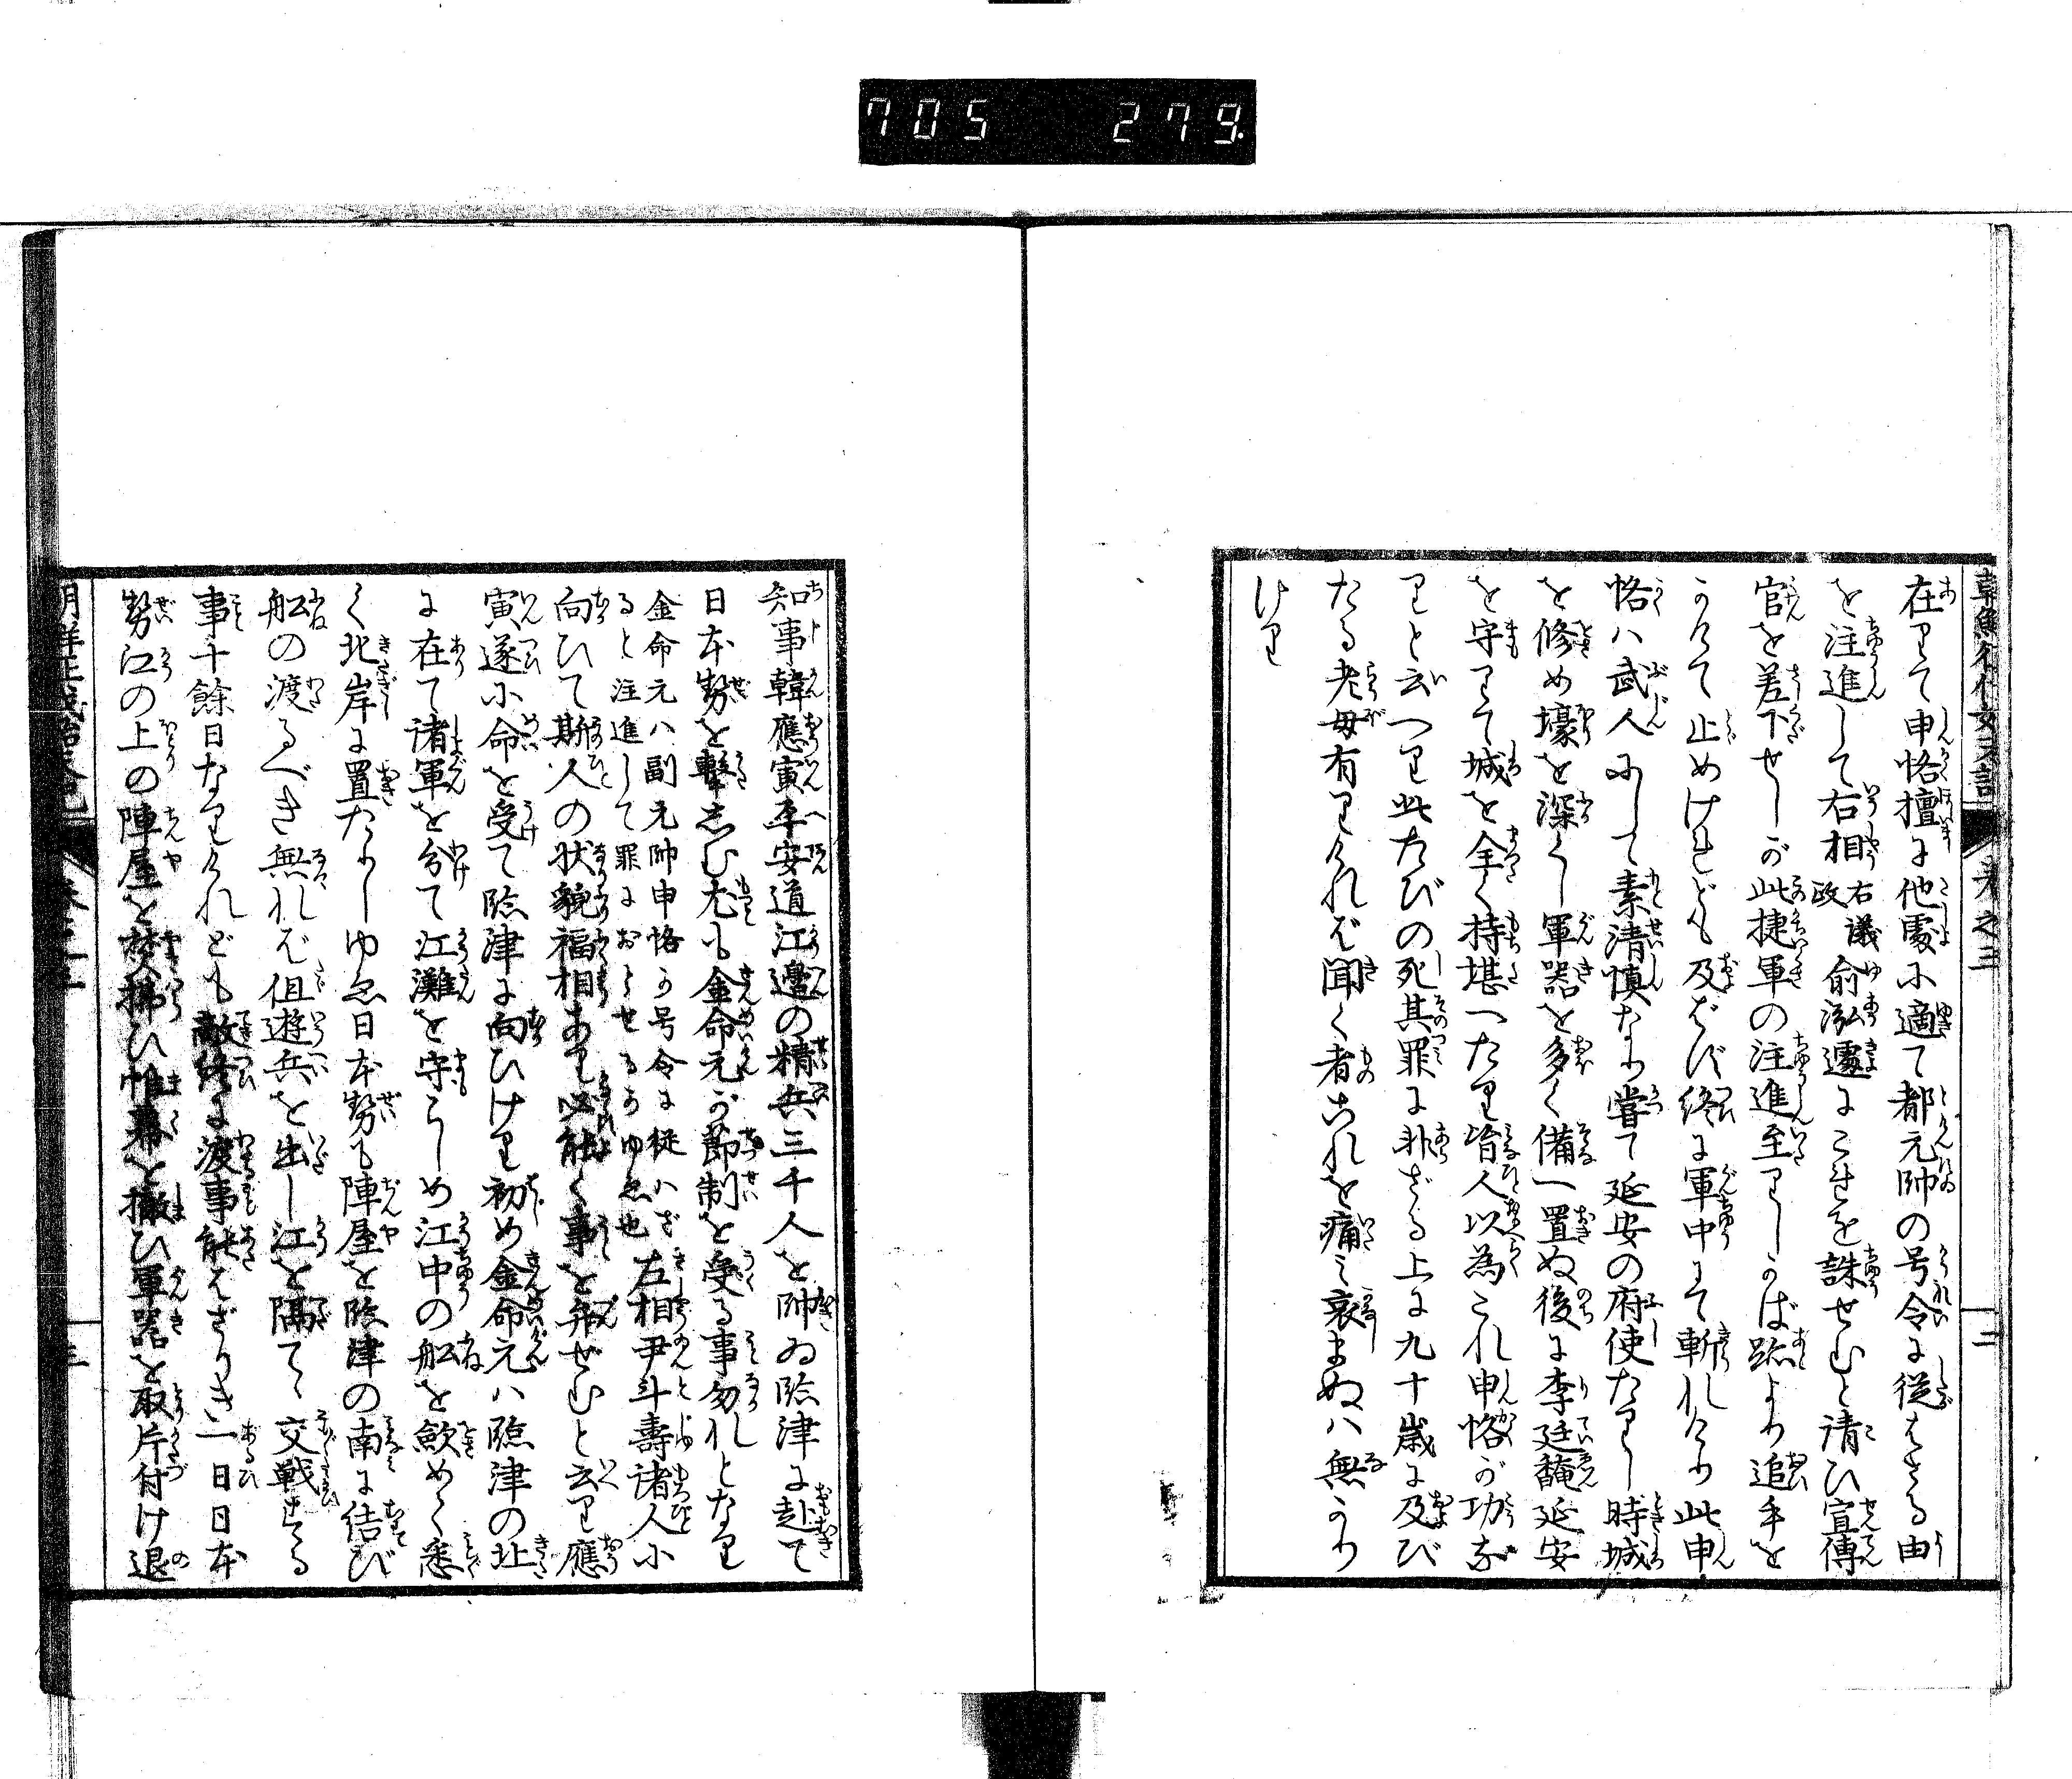 705 279.
在りて申恪擅に他處に適て都元帥の号令に從はざる由
を注進して右相右議政俞泓遽にこれを誅せむと請ひ宣傳
官を差下せしが此捷軍の注進至りしかば跡より追手を
かけて止めけれども及ばず終に軍中にて斬れけり此申
恪ハ武人にして素清慎なり嘗て延安の府使たりし時城
を修め壕を深くし軍器を多く備へ置ぬ後に李廷馣延安
を守りて城を全く持堪へたり皆人以為これ申恪が功な
りと云へり此たびの死其罪に非ざる上に九十歳に及び
たる老毋有りけれバ聞く者これを痛み哀まぬハ無かり
けり
知事韓應寅平安道江邉の精兵三千人を帥ゐ臨津に赴て
日本勢を撃しむ尤も金命元が節制を受る事勿れとなり
金命元ハ副元帥申恪か号令に從ハざ
ると注進して罪におとせるかゆゑ也
左相尹斗壽諸人に
向ひて斯人の状貌福相あり必能く事を弁ぜむと云り應
寅遂に命を受て臨津に向ひけり初め金命元ハ臨津の北
に在て諸軍を分て江灘を守らしめ江中の船を斂めく悉
く北岸に置たりしゆゑ日本勢も陣屋を臨津の南に結び
船の渡るべき無れバ但遊兵を出し江を隔てゝ交戰する
事十餘日なりけれども敵終に渡事能はざりき一日日本
勢江の上の陣屋を焚拂ひ帷幕を撤ひ軍器を取片付け退